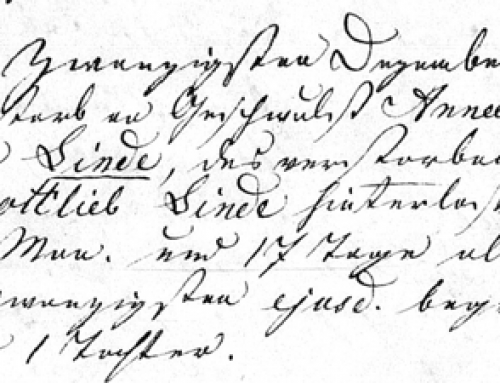 Zwanzigsten Dezembe
starb an Geschwulst Anne
Linde, des verstorbe
ottlieb Linde hinterlas
Mon. und 17 Tage al
wanzigsten ejusd. beg
1 Tochter.